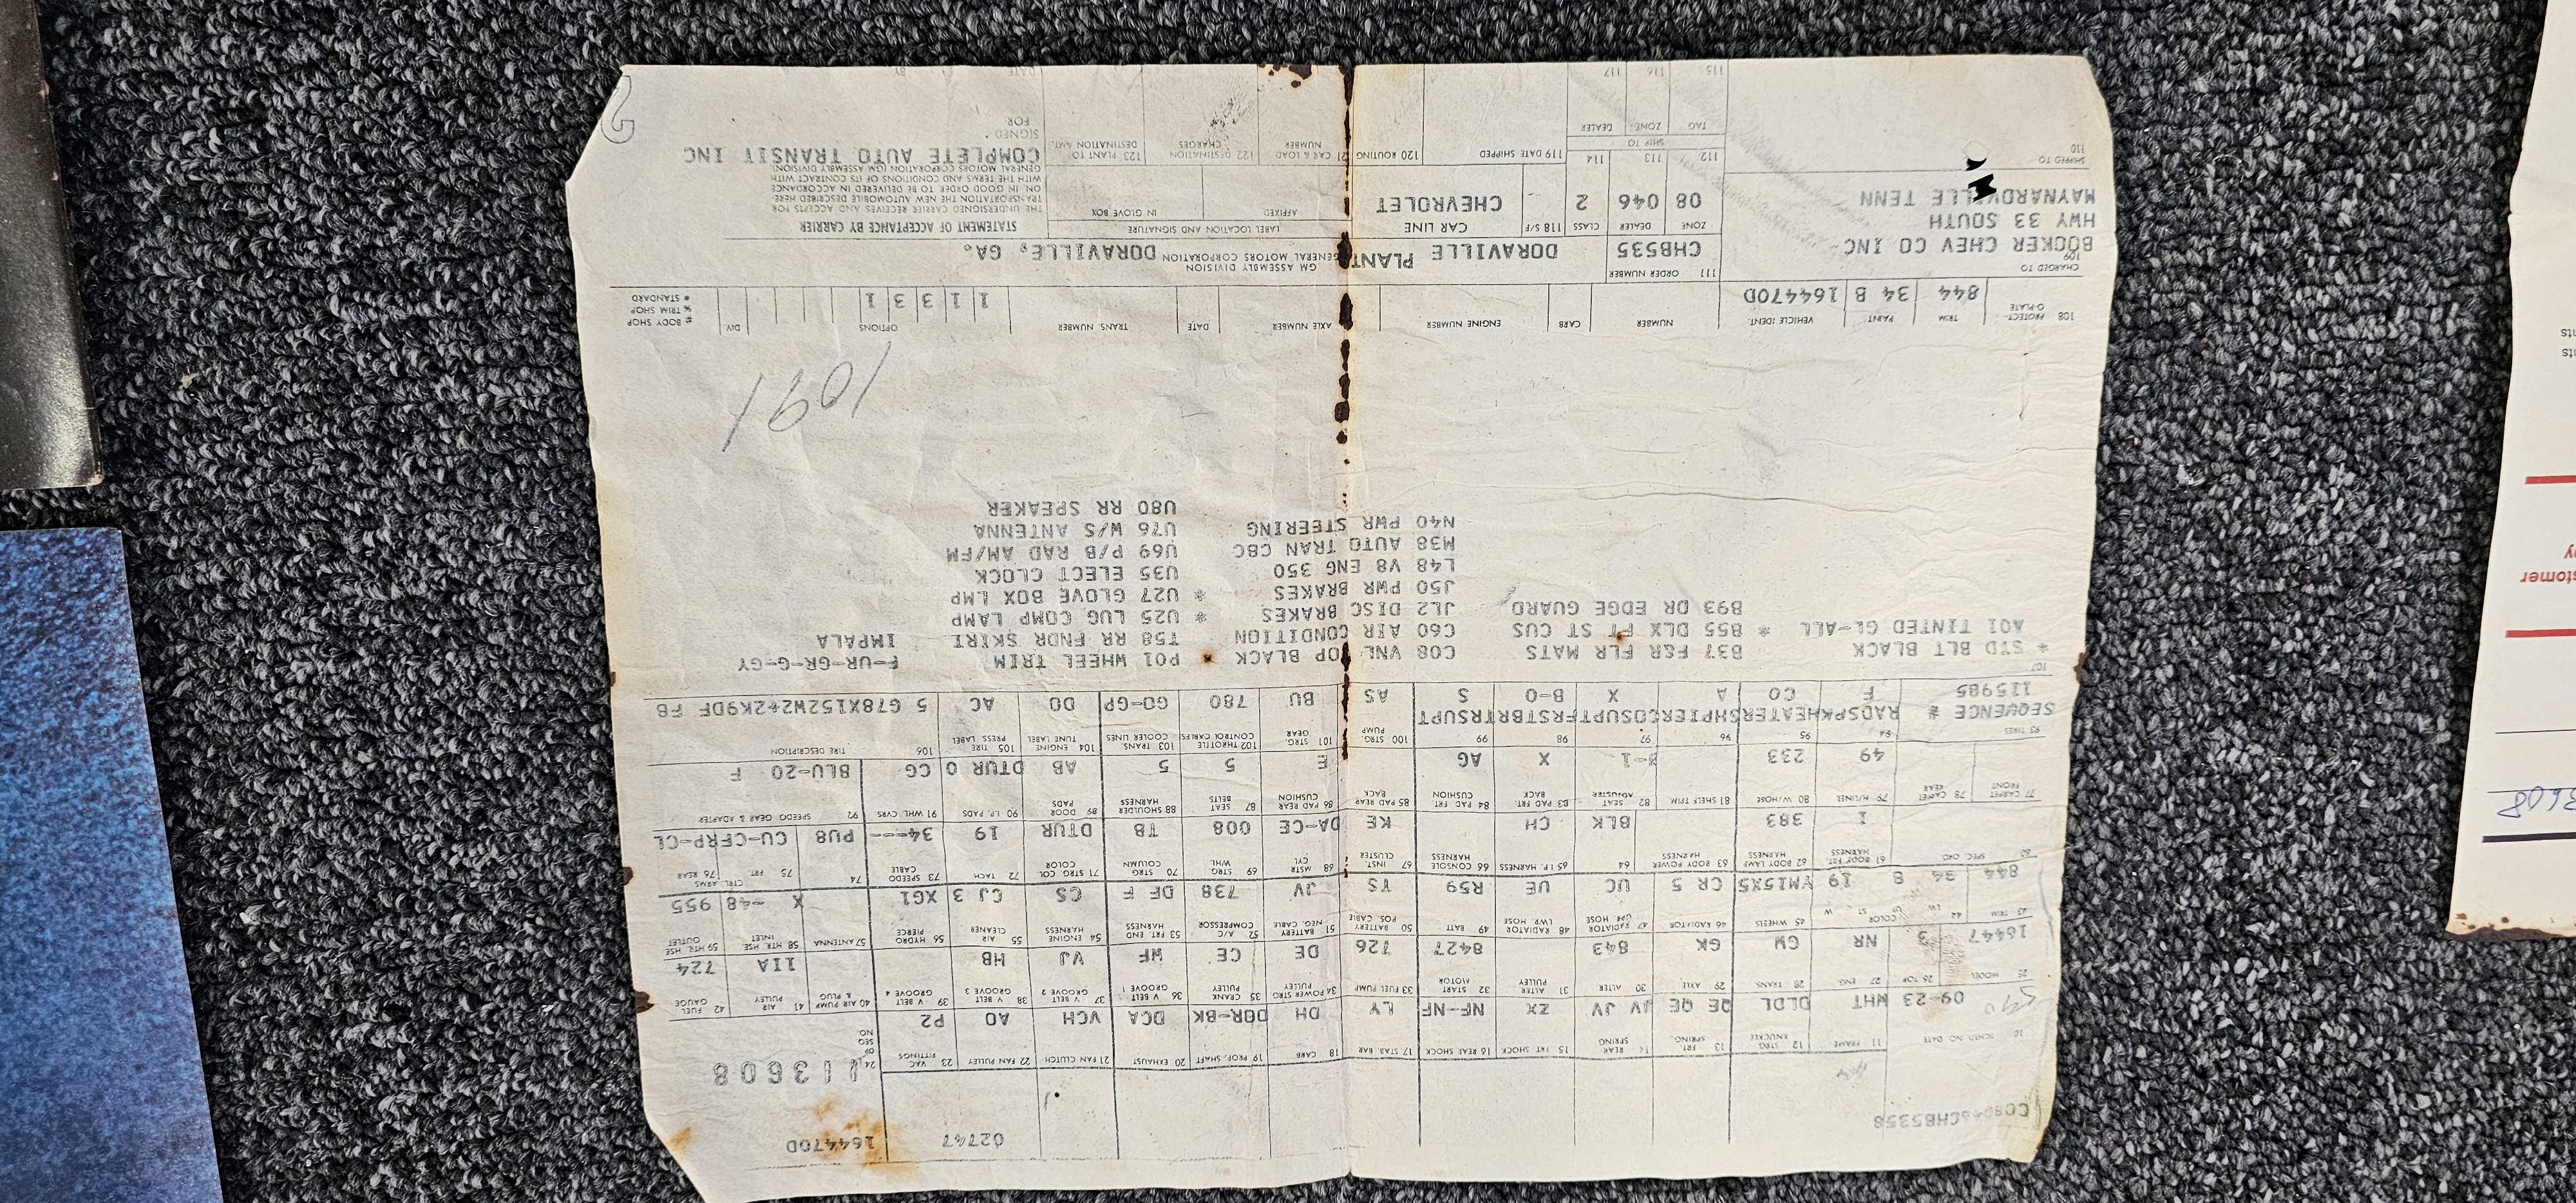 C08046CHB5358
02747
164470D
113608
24 SEQ. NO.
10 SCHED NO DATE
11 FRAME
12 STRG KNUCKLE
13 FRT. SPRING
14 REAR SPRING
15 FRT SHOCK
16 REAR SHOCK
17 STAB. BAR
18 CARB
19 PROP. SHAFT
20 EXHAUST
21 FAN CLUTCH
22 FAN PULLEY
23 VAC FITTINGS
09-23 WHT DLDL QE QE JV JV ZX NF-NF LY DH DBR-BK DCA VCH AO P2
25 MODEL
26 TOP
27 ENG
28 TRANS
29 AXLE
30 ALTER
31 ALTER PULLEY
32 START MOTOR
33 FUEL PUMP
34 POWER STRG PULLEY
35 CRANK PULLEY
36 V BELT GROOVE 1
37 V BELT GROOVE 2
38 V BELT GROOVE 3
39 V BELT GROOVE 4
40 AIR PUMP & PLUG
41 AIR PULLEY
42 FUEL GAUGE
16447 3 NR GW GK 843 8427 726 DE CE WF VJ HB IIA 724
43 TRIM
44 LW COLOR UP ST W
45 WHEELS
46 RADIATOR
47 RADIATOR UPR HOSE
48 RADIATOR LWR. HOSE
49 BATT
50 BATTERY POS. CABLE
51 BATTERY NEG. CABLE
52 A/C COMPRESSOR
53 FRT. END HARNESS
54 ENGINE HARNESS
55 AIR CLEANER
56 HYDRO PIERCE
57 ANTENNA
58 HTR. HSE INLET
59 HTR. HSE OUTLET
844 34 B 19 YM15X5 CR 5 UC UE R59 TS JV 738 DF F CS CJ 3 XG1 X -48 955
60 SPEC. ORD.
61 BODY FRT. HARNESS
62 BODY LAMP HARNESS
63 BODY POWER HARNESS
64
65 I.P. HARNESS
66 CONSOLE HARNESS
67 INST. CLUSTER
68 MSTR CYL
69 STRG. WHL
70 STRG. COLUMN
71 STRG. COL COLOR
72 TACH
73 SPEEDO CABLE
74
75 FRT. CTRL. ARMS
76 REAR
I 383 BLK CH KE DA-CE 008 T8 DTUR 19 34--- PU8 CU-CFRP-CL
77 CARPET FRONT
78 CARPET REAR
79 H/LINER
80 W/HOSE
81 SHELF TRIM.
82 SEAT ADJUSTER
83 PAD FRT. BACK
84 PAD FRT CUSHION
85 PAD REAR BACK
86 PAD REAR CUSHION
87 SEAT BELTS
88 SHOULDER HARNESS
89 DOOR PADS
90 I.P. PADS
91 WHL CVRS.
92 SPEEDO GEAR & ADAPTER
49 233 B-1 X AG E 5 5 AB DTUR 0 CG BLU-20 F
93 TIRES
94
95
96
97
98
99
100 STRG. PUMP
101 STRG. GEAR
102 THROTTLE CONTROL CABLES
103 TRANS. COOLER LINES
104 ENGINE TUNE LABEL
105 TIRE PRESS LABEL
106 TIRE DESCRIPTION
SEQUENCE # RADSPKHEATERSHPIERCOSUPTFRSTBRTRSUPT
115985 F CO A X B-O S AS BU 780 GO-GP DO AC 5 G78X152W2+2K9DF FB
107
* STD BLT BLACK B37 F&R FLR MATS C08 VNL TOP BLACK * P01 WHEEL TRIM F-UR-GR-G-GY
A01 TINTED GL-ALL * B55 DLX FT ST CUS C60 AIR CONDITION T58 RR FNDR SKIRT IMPALA
B93 DR EDGE GUARD JL2 DISC BRAKES * U25 LUG COMP LAMP
J50 PWR BRAKES * U27 GLOVE BOX LMP
L48 V8 ENG 350 U35 ELECT CLOCK
M38 AUTO TRAN CBC U69 P/B RAD AM/FM
N40 PWR STEERING U76 W/S ANTENNA
U80 RR SPEAKER
1601
108 PROTECT-O-PLATE
TRIM
PAINT
VEHICLE IDENT.
NUMBER
CARB
ENGINE NUMBER
AXLE NUMBER
DATE
TRANS. NUMBER
OPTIONS
DIV.
# BODY SHOP
% TRIM SHOP
* STANDARD
844 34 B 164470D 1 1 3 3 1
CHARGED TO
109
BOOKER CHEV CO INC
HWY 33 SOUTH
MAYNARDVILLE TENN
111 ORDER NUMBER
CHB535
DORAVILLE PLANT
GM ASSEMBLY DIVISION
GENERAL MOTORS CORPORATION
DORAVILLE, GA.
ZONE DEALER CLASS 118 S/F CAR LINE
08 046 2 CHEVROLET
LABEL LOCATION AND SIGNATURE
AFFIXED
IN GLOVE BOX
STATEMENT OF ACCEPTANCE BY CARRIER
THE UNDERSIGNED CARRIER RECEIVES AND ACCEPTS FOR
TRANSPORTATION THE NEW AUTOMOBILE DESCRIBED HERE-
ON, IN GOOD ORDER TO BE DELIVERED IN ACCORDANCE
WITH THE TERMS AND CONDITIONS OF ITS CONTRACT WITH
GENERAL MOTORS CORPORATION (GM ASSEMBLY DIVISION)
COMPLETE AUTO TRANSIT INC
SIGNED
FOR
DATE BY
SHIPPED TO
110
112 113 114
SHIP TO
TAG ZONE DEALER
115 116 117
119 DATE SHIPPED
120 ROUTING
121 CAR & LOAD NUMBER
122 DESTINATION CHARGES
123 PLANT TO DESTINATION AMT.
2
stomer